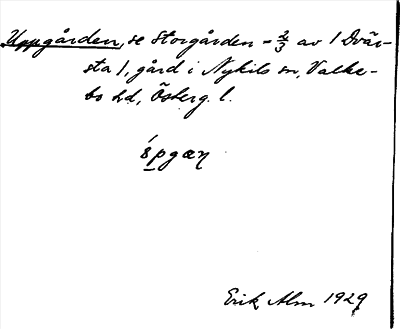 Uppgården, se Storgården = 2/3 av 1 Dvär-
sta 1, gård i Nykils sn, Valke-
bo hd, Österg. l.
Erik Alm 1929